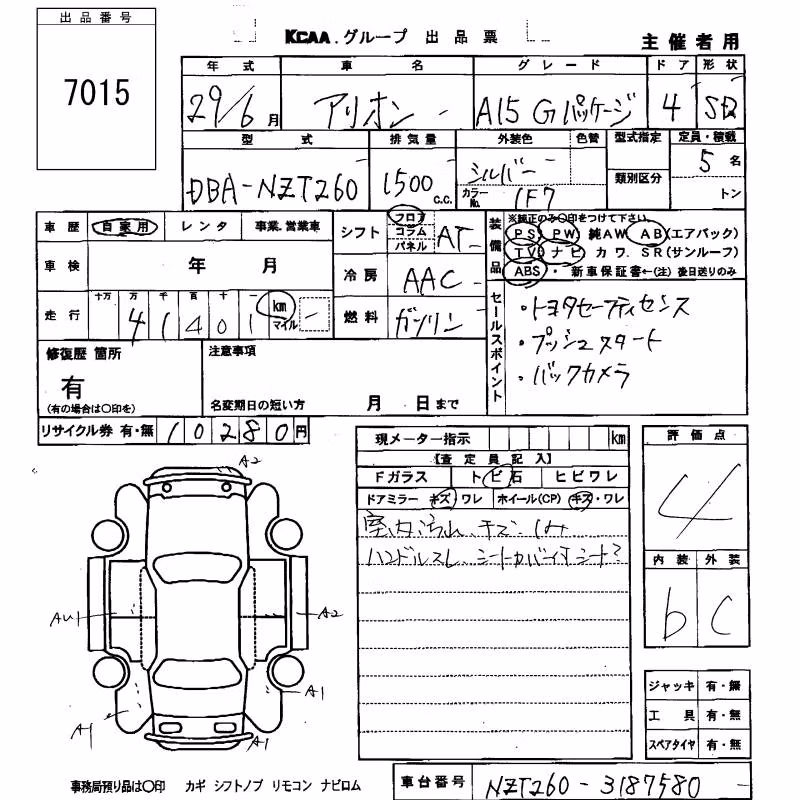 出品番号
7015
KCAA.グループ 出品票
主催者用
年式 車名 グレード ドア 形状
29/6月 アリオン A15 Gパッケージ 4 SD
型式 排気量 外装色 色替 型式指定 定員・積載
DBA-NZT260 1500 c.c. シルバー 5名
カラーNo. 1F7 類別区分 トン
車歴 自家用 レンタ 事業.営業車
シフト フロア コラム パネル AT
装備品 ※純正のみ〇印をつけて下さい。
PS PW 純AW AB(エアバック)
TV ナビ カワ.SR(サンルーフ)
ABS ・ 新車保証書←(注) 後日送りのみ
車検 年 月
冷房 AAC
走行 十万 万 千 百 十 一 km マイル
41401
燃料 ガソリン
セールスポイント
・トヨタセーフティセンス
・プッシュスタート
・バックカメラ
修復歴 箇所
有
(有の場合は〇印を)
注意事項
名変期日の短い方 月 日まで
リサイクル券 有・無 10280円
現メーター指示 km
【査定員記入】
Fガラス トビ石 ヒビワレ
ドアミラー キズ ワレ ホイール(CP) キズ・ワレ
室内汚れ、キズ・シミ
ハンドルスレ
評価点
4
内装 外装
b C
A2
AU1
A2
A1
A1
A1
ジャッキ 有・無
工具 有・無
スペアタイヤ 有・無
事務局預り品は〇印 カギ シフトノブ リモコン ナビロム
車台番号 NZT260-3187580